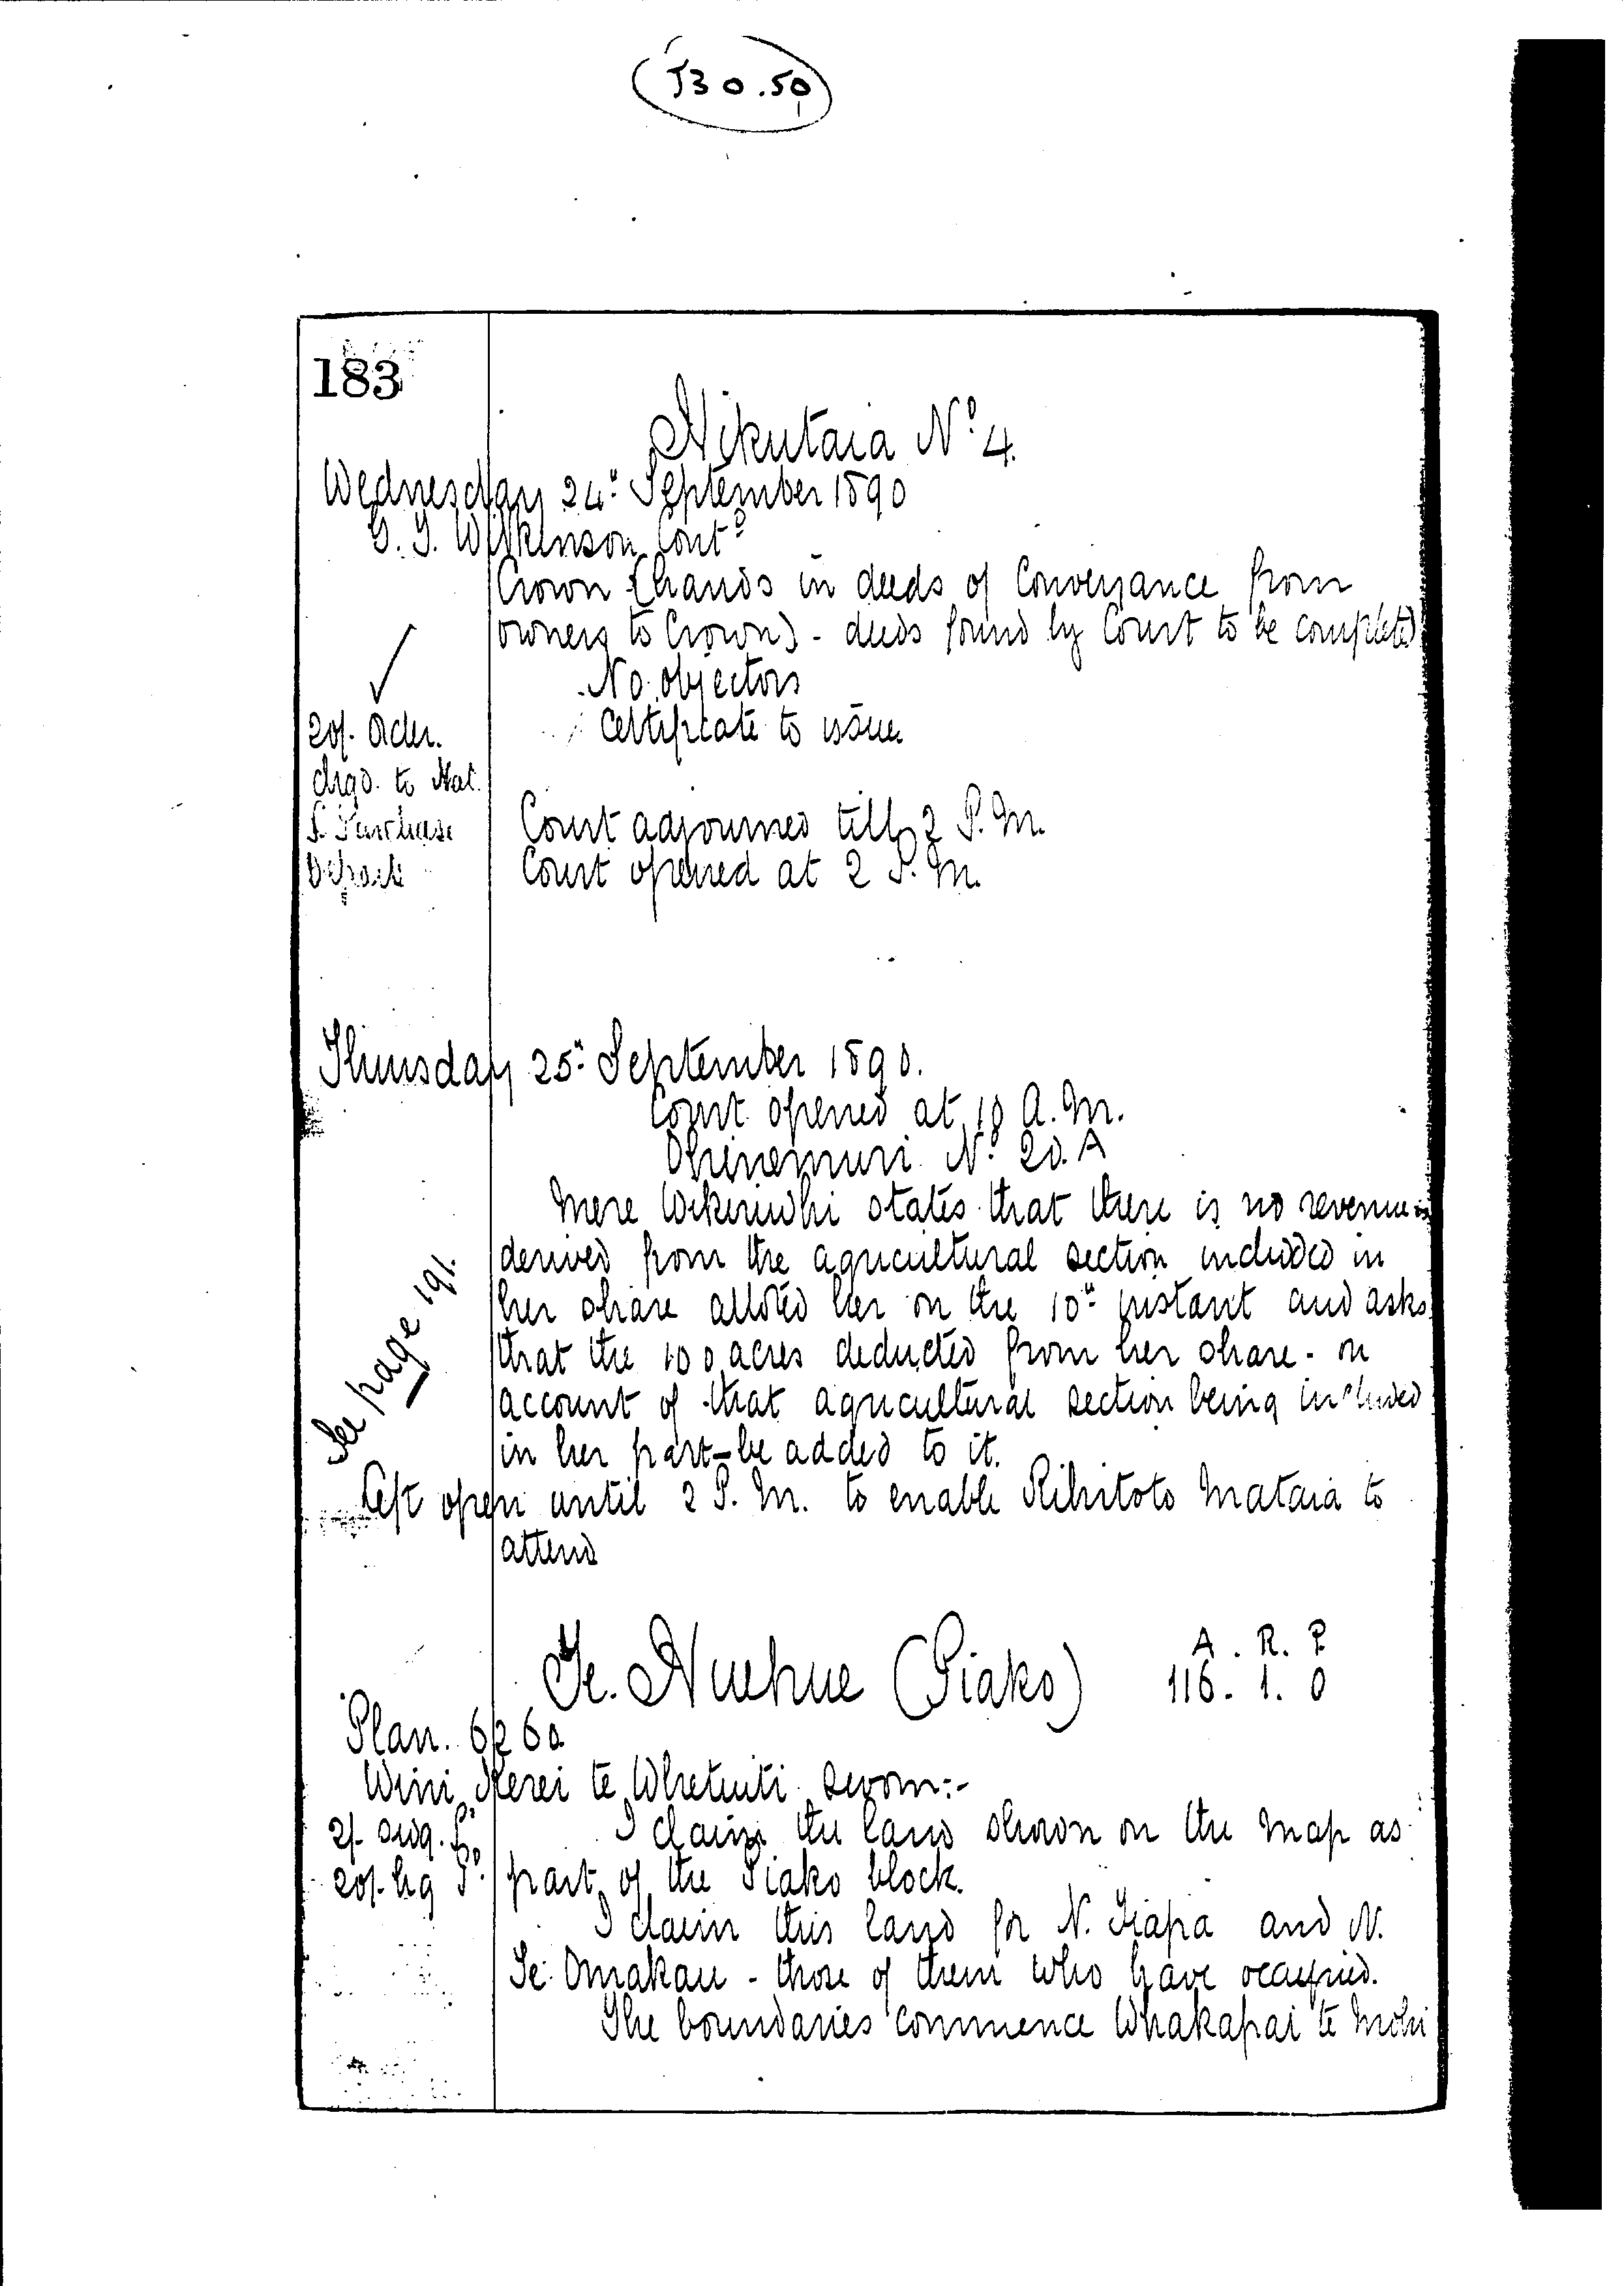 J30.50
183
Hikutaia No. 4.
Wednesday 24th September 1890
G. T. Wilkinson Contd
Crown (hands in deeds of Conveyance from
owners to Crown) - deeds found by Court to be completed
No objectors
Certificate to issue
20/- Order.
chgd. to Nat.
L. Purchase
Departt
Court adjourned till 2 P.M.
Court opened at 2 P.M.
Thursday 25th September 1890.
Court opened at 10 A.M.
Ohinemuri No. 20.A
Mere Wikiriwhi states that there is no revenue is
derived from the agricultural section included in
her share alloted her on the 10th instant and asks
that the 100 acres deducted from her share - on
account of that agricultural section being included
in her part - be added to it.
See page 191.
Left open until 2 P.M. to enable Rihitoto Mataia to
attend
Te Huehue (Piako)
A. R. P.
116. 1. 0
Plan. 6260
Wini Kerei te Whetuiti sworn:-
2/- swg.
20/- hg
I claim the land shown on the map as
part of the Piako block.
I claim this land for N. Tiapa and N.
Te Omakau - those of them who have occupied.
The boundaries commence Whakapai te Mohi